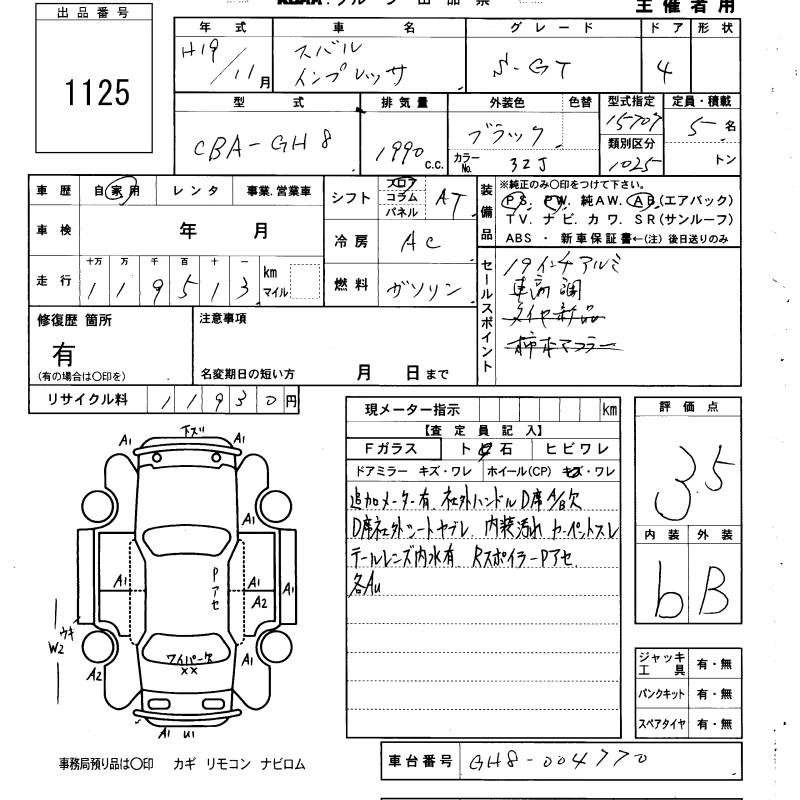 主催者用
出品番号
1125
年式 車名 グレード ドア 形状
H19/11月 スバル インプレッサ S-GT 4
型式 排気量 外装色 色替 型式指定 定員・積載
CBA-GH8 1990c.c. ブラック 15707 5名
カラーNo. 32J 類別区分 1025 トン
車歴 自家用 レンタ 事業.営業車
車検 年 月
走行 十万 万 千 百 十 一
119513 km マイル
シフト フロア コラム パネル AT
冷房 AC
燃料 ガソリン
装備品
※純正のみ〇印をつけて下さい。
PS. PW. 純AW. AB(エアバック)
TV. ナビ. カワ. SR(サンルーフ)
ABS ・ 新車保証書←(注) 後日送りのみ
セールスポイント
19インチアルミ
車高調
タイヤ新品
柿本マフラー
修復歴 箇所
有
(有の場合は〇印を)
注意事項
名変期日の短い方 月 日まで
リサイクル料 11930円
現メーター指示 km
【査定員記入】
Fガラス ト石 ヒビワレ
ドアミラー キズ・ワレ ホイール(CP) キズ・ワレ
追加メーター有 社外ハンドル D席A/B欠
D席社外シートヤブレ 内装汚れ カーペットスレ
テールレンズ内水有 RスポイラーPアセ
各AU
評価点
3.5
内装 外装
b B
ジャッキ工具 有・無
パンクキット 有・無
スペアタイヤ 有・無
車台番号 GH8-004770
下ズリ
A1 A1
A1
A1 A1 A1
A2
Pアセ
ウキ
W2
A2 A1
ワイパー欠
××
A1 U1
事務局預り品は〇印 カギ リモコン ナビロム